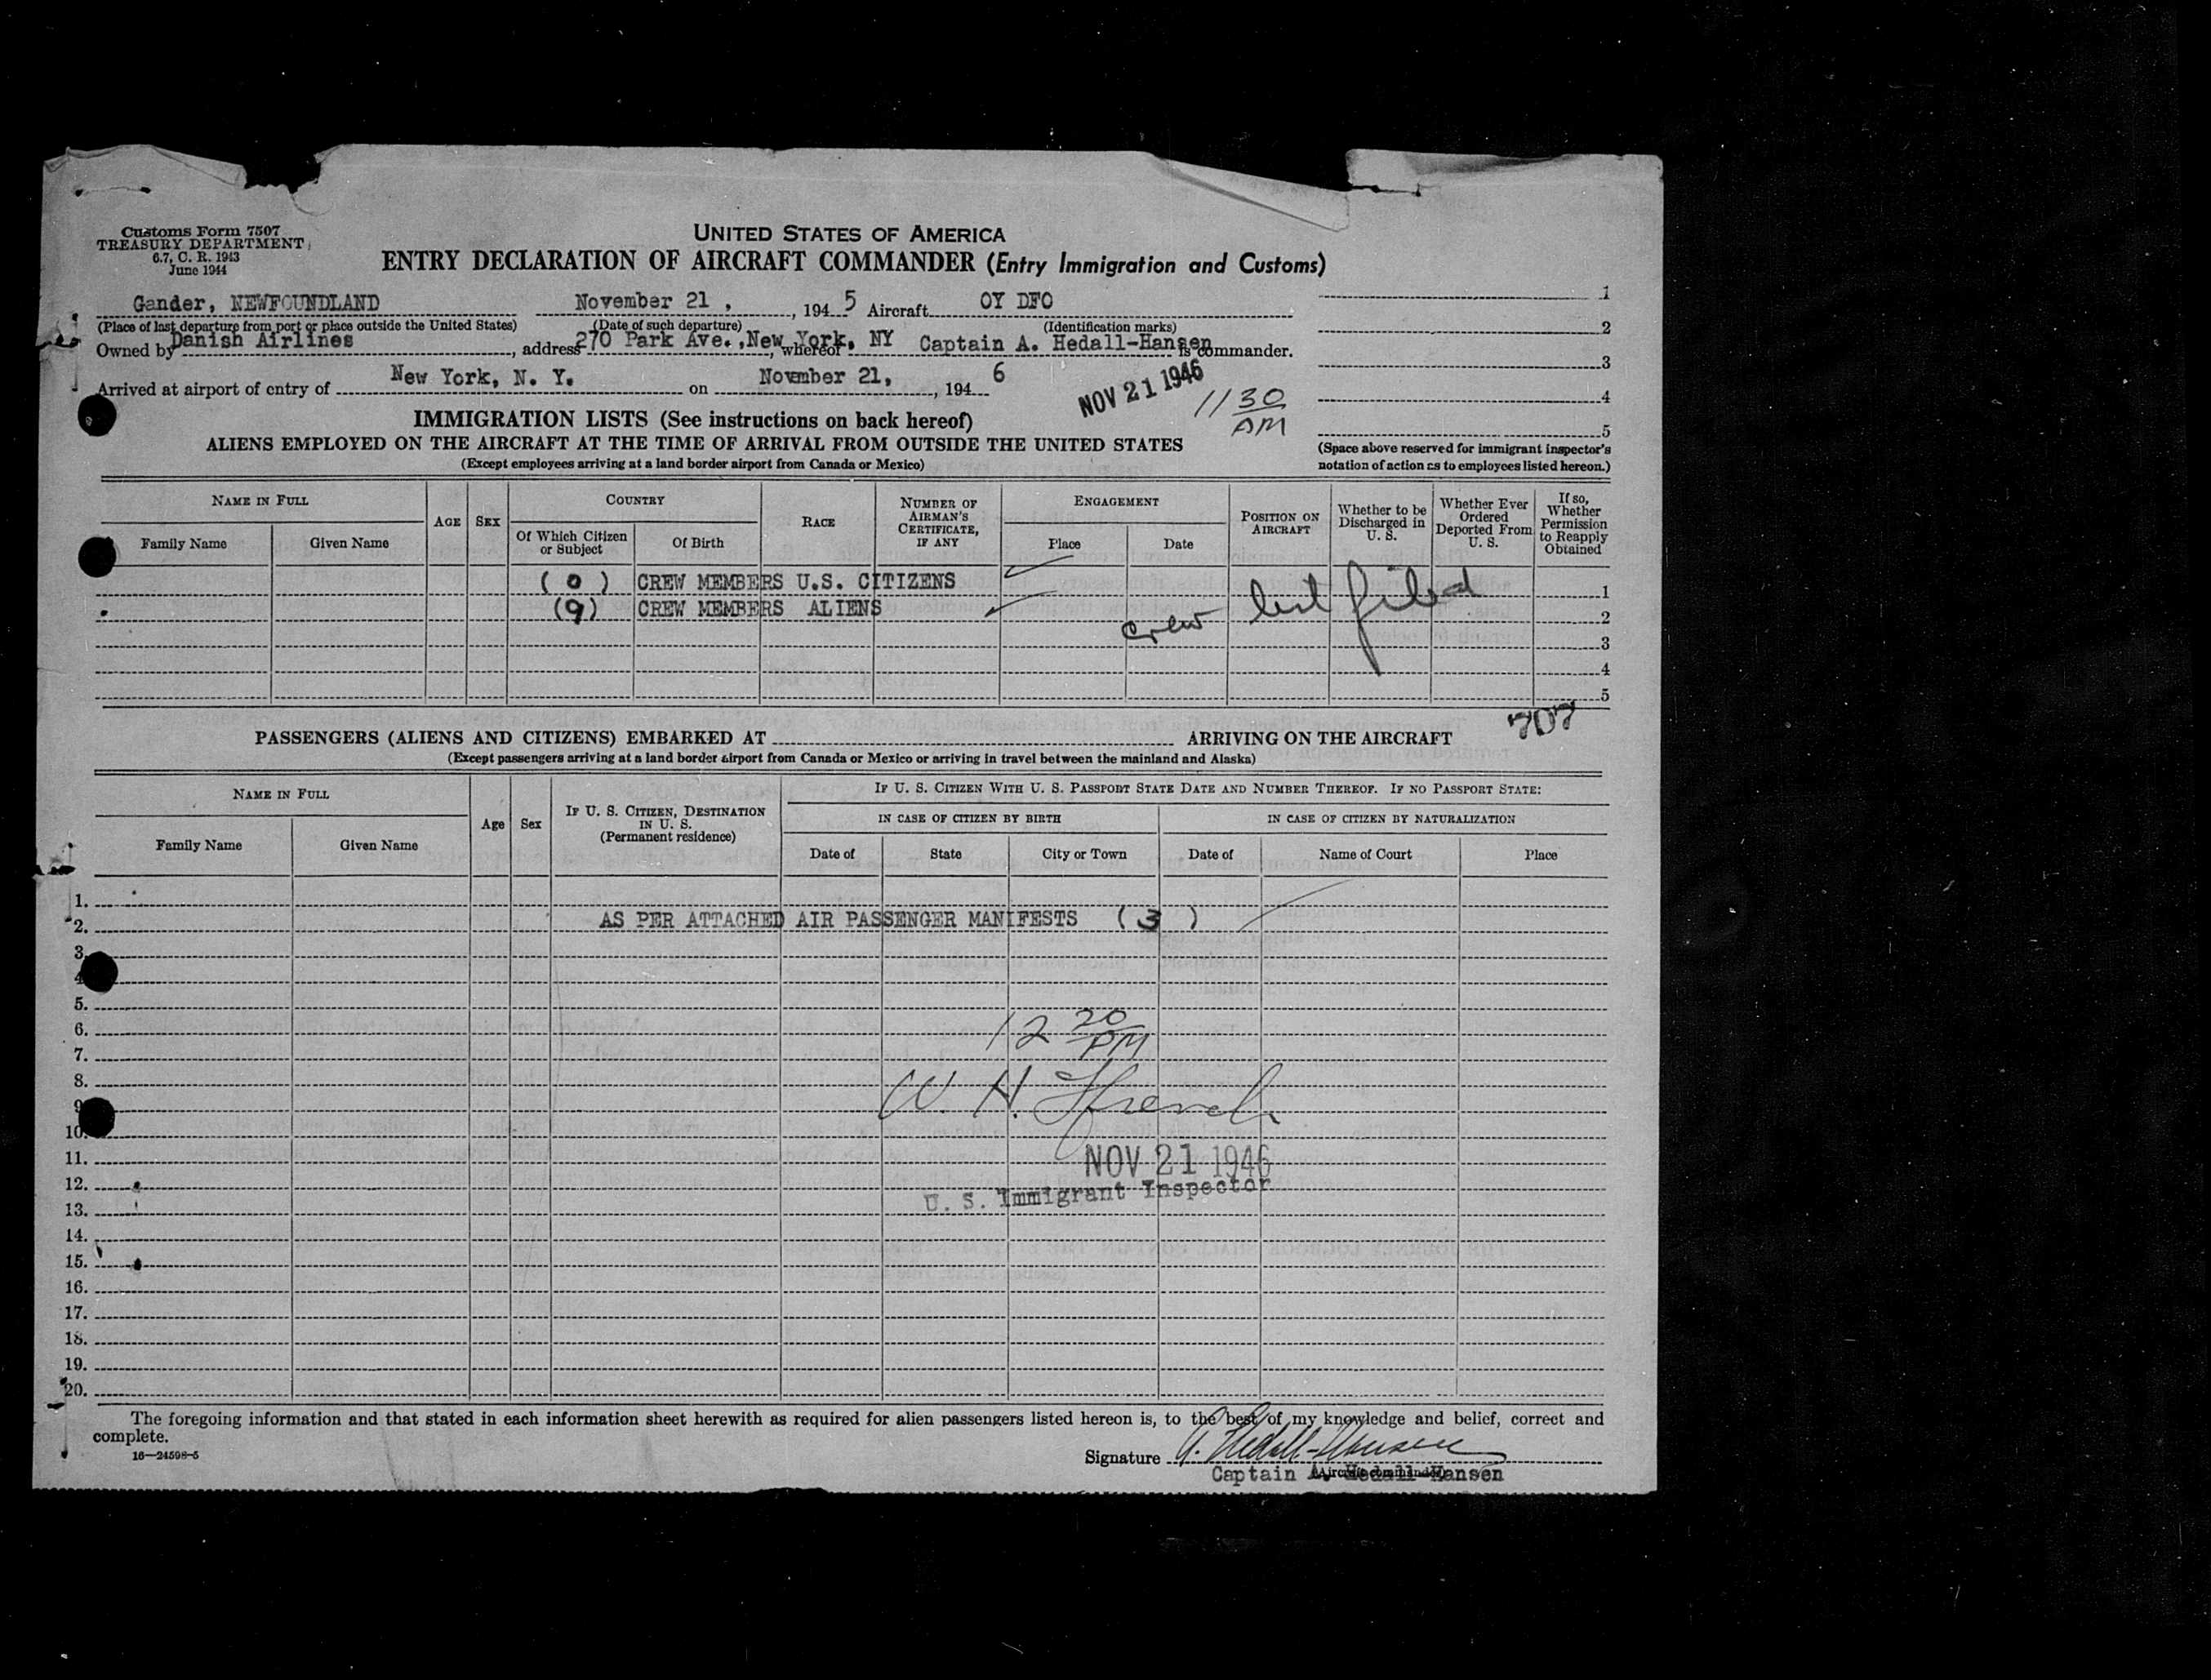 Customs Form 7507
TREASURY DEPARTMENT
6.7, C. R. 1943
June 1944
UNITED STATES OF AMERICA
ENTRY DECLARATION OF AIRCRAFT COMMANDER (Entry Immigration and Customs)
Gander, NEWFOUNDLAND November 21 , , 194 5 Aircraft OY DFO 1
(Place of last departure from port or place outside the United States) (Date of such departure) (Identification marks) 2
Owned by Danish Airlines , address 270 Park Ave., New York, NY , whereof Captain A. Hedall-Hansen is commander.
3
Arrived at airport of entry of New York, N. Y. on November 21, , 194 6
NOV 21 1946
11 30 AM
4
5
IMMIGRATION LISTS (See instructions on back hereof)
ALIENS EMPLOYED ON THE AIRCRAFT AT THE TIME OF ARRIVAL FROM OUTSIDE THE UNITED STATES
(Except employees arriving at a land border airport from Canada or Mexico)
(Space above reserved for immigrant inspector's
notation of action as to employees listed hereon.)
NAME IN FULL
Family Name Given Name
AGE
SEX
COUNTRY
Of Which Citizen or Subject
Of Birth
RACE
NUMBER OF AIRMAN'S CERTIFICATE, IF ANY
ENGAGEMENT
Place Date
POSITION ON AIRCRAFT
Whether to be Discharged in U. S.
Whether Ever Ordered Deported From U. S.
If so, Whether Permission to Reapply Obtained
( 0 ) CREW MEMBERS U.S. CITIZENS 1
(9) CREW MEMBERS ALIENS crew list filed 2
3
4
5
707
PASSENGERS (ALIENS AND CITIZENS) EMBARKED AT ARRIVING ON THE AIRCRAFT
(Except passengers arriving at a land border airport from Canada or Mexico or arriving in travel between the mainland and Alaska)
NAME IN FULL
Family Name Given Name
Age
Sex
IF U. S. CITIZEN, DESTINATION IN U. S.
(Permanent residence)
IF U. S. CITIZEN WITH U. S. PASSPORT STATE DATE AND NUMBER THEREOF. IF NO PASSPORT STATE:
IN CASE OF CITIZEN BY BIRTH IN CASE OF CITIZEN BY NATURALIZATION
Date of State City or Town Date of Name of Court Place
1.
2. AS PER ATTACHED AIR PASSENGER MANIFESTS ( 3 )
3.
4.
5.
6. 12 20 PM
7.
8.
9. W. H. French
10.
11. NOV 21 1946
12. U. S. Immigrant Inspector
13.
14.
15.
16.
17.
18.
19.
20.
The foregoing information and that stated in each information sheet herewith as required for alien passengers listed hereon is, to the best of my knowledge and belief, correct and
complete.
16—24598-5
Signature A. Hedall-Hansen
(Aircraft commander)
Captain A. Hedall-Hansen